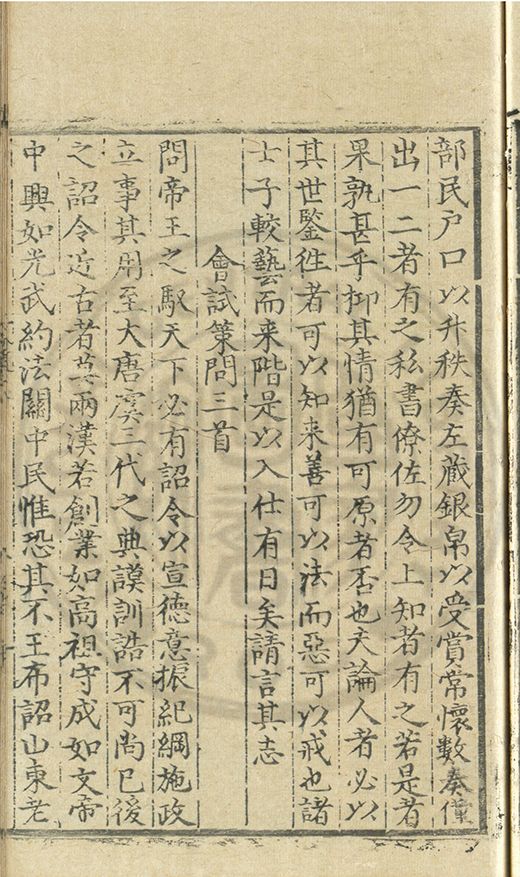 部民户口以升秩奏左藏銀帛以受賞常懷數奏僅
出一二者有之私書僚佐勿令上知者有之若是者
果孰甚乎抑其情猶有可原者否也夫論人者必以
其世鍳徃者可以知来善可以法而惡可以戒也諸
士子較藝而来階是以入仕有日矣請言其志
會試策問三首
問帝王之馭天下必有詔令以宣德意振紀綱施政
立事其用至大唐虞三代之典謨訓誥不可尚已後
之詔令近古者莫兩漢若創業如髙祖守成如文帝
中興如光武約法關中民惟恐其不王布詔山東老